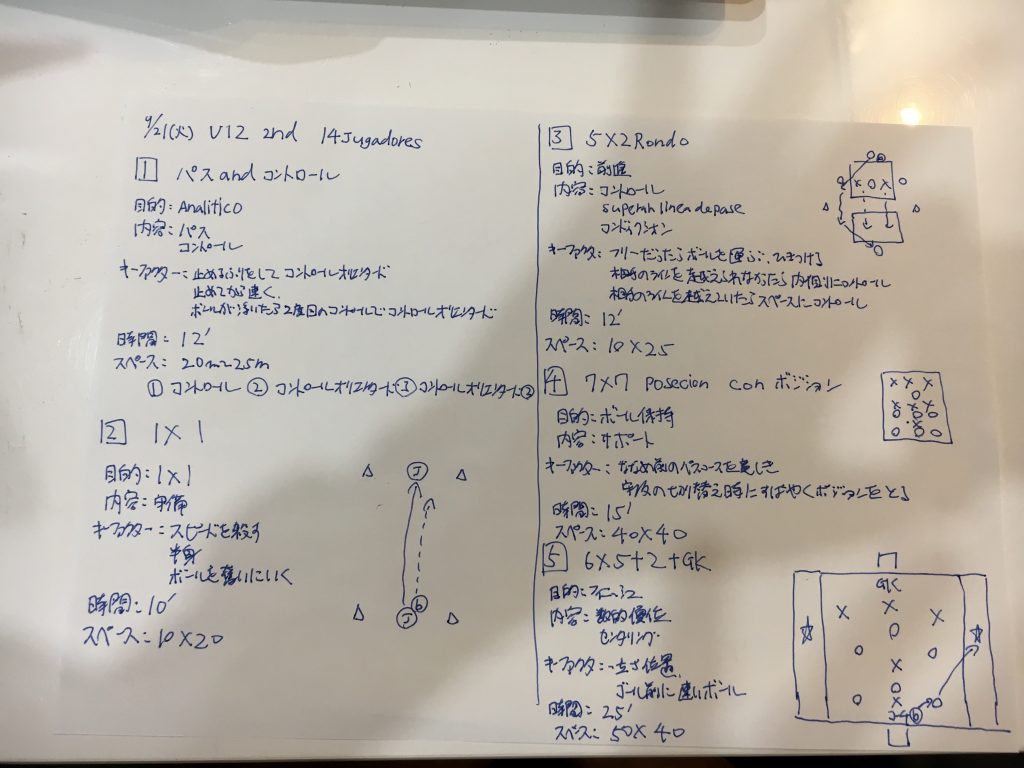 9/21(火) U12 2nd 14Jugadores
1 パス and コントロール
目的: Analitico
内容: パス
コントロール
キーファクター: 止めるふりをして コントロールオリエンタード
止めてから速く
ボールが浮いたら2度目のコントロールで コントロールオリエンタード
時間: 12'
スペース: 20m~25m
① コントロール ② コントロールオリエンタード③コントロールオリエンタード②
2 1×1
目的: 1×1
内容: 守備
キーファクター: スピードを殺す
半身
ボールを奪いにいく
時間: 10'
スペース: 10×20
J
J
3 5×2 Rondo
目的: 前進
内容: コントロール
superar linea de pase
コンドゥクシオン
キーファクタ: フリーだったらボールを運ぶ、ひきつける
相手のラインを越えられなかったら内側にコントロール
相手のラインを越えていたらスペースにコントロール
時間: 12'
スペース: 10×25
4 7×7 posecion con ポジション
目的: ボール保持
内容: サポート
キーファクター: ななめ前のパスコースを
守攻の切り替え時にすばやくポジションをとる
時間: 15'
スペース: 40×40
5 6×5+2+GK
目的: フィニッシュ
内容: 数的優位
センタリング
キーファクタ: 立ち位置
ゴール前に速いボール
時間: 25'
スペース: 50×40
GK